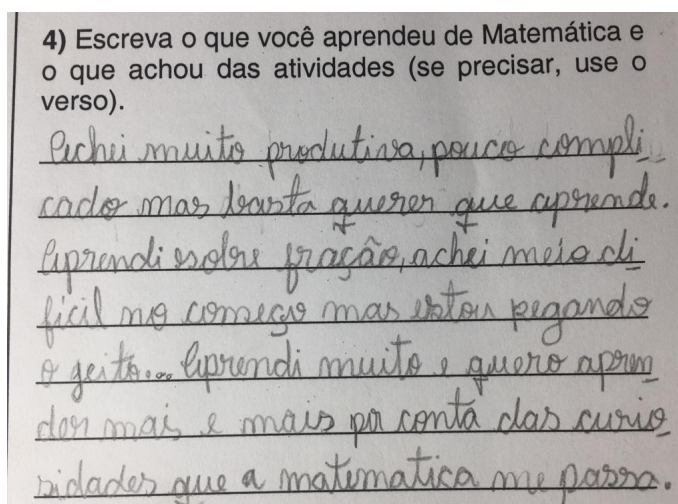 4) Escreva o que você aprendeu de Matemática e
o que achou das atividades (se precisar, use o
verso).
Achei muito produtiva, pouco compli
cado mas basta querer que aprende.
Aprendi sobre fração, achei meio di
fícil no começo mas estou pegando
o geito... Aprendi muito e quero apren
der mais e mais por conta das curio
sidades que a matematica me passa.